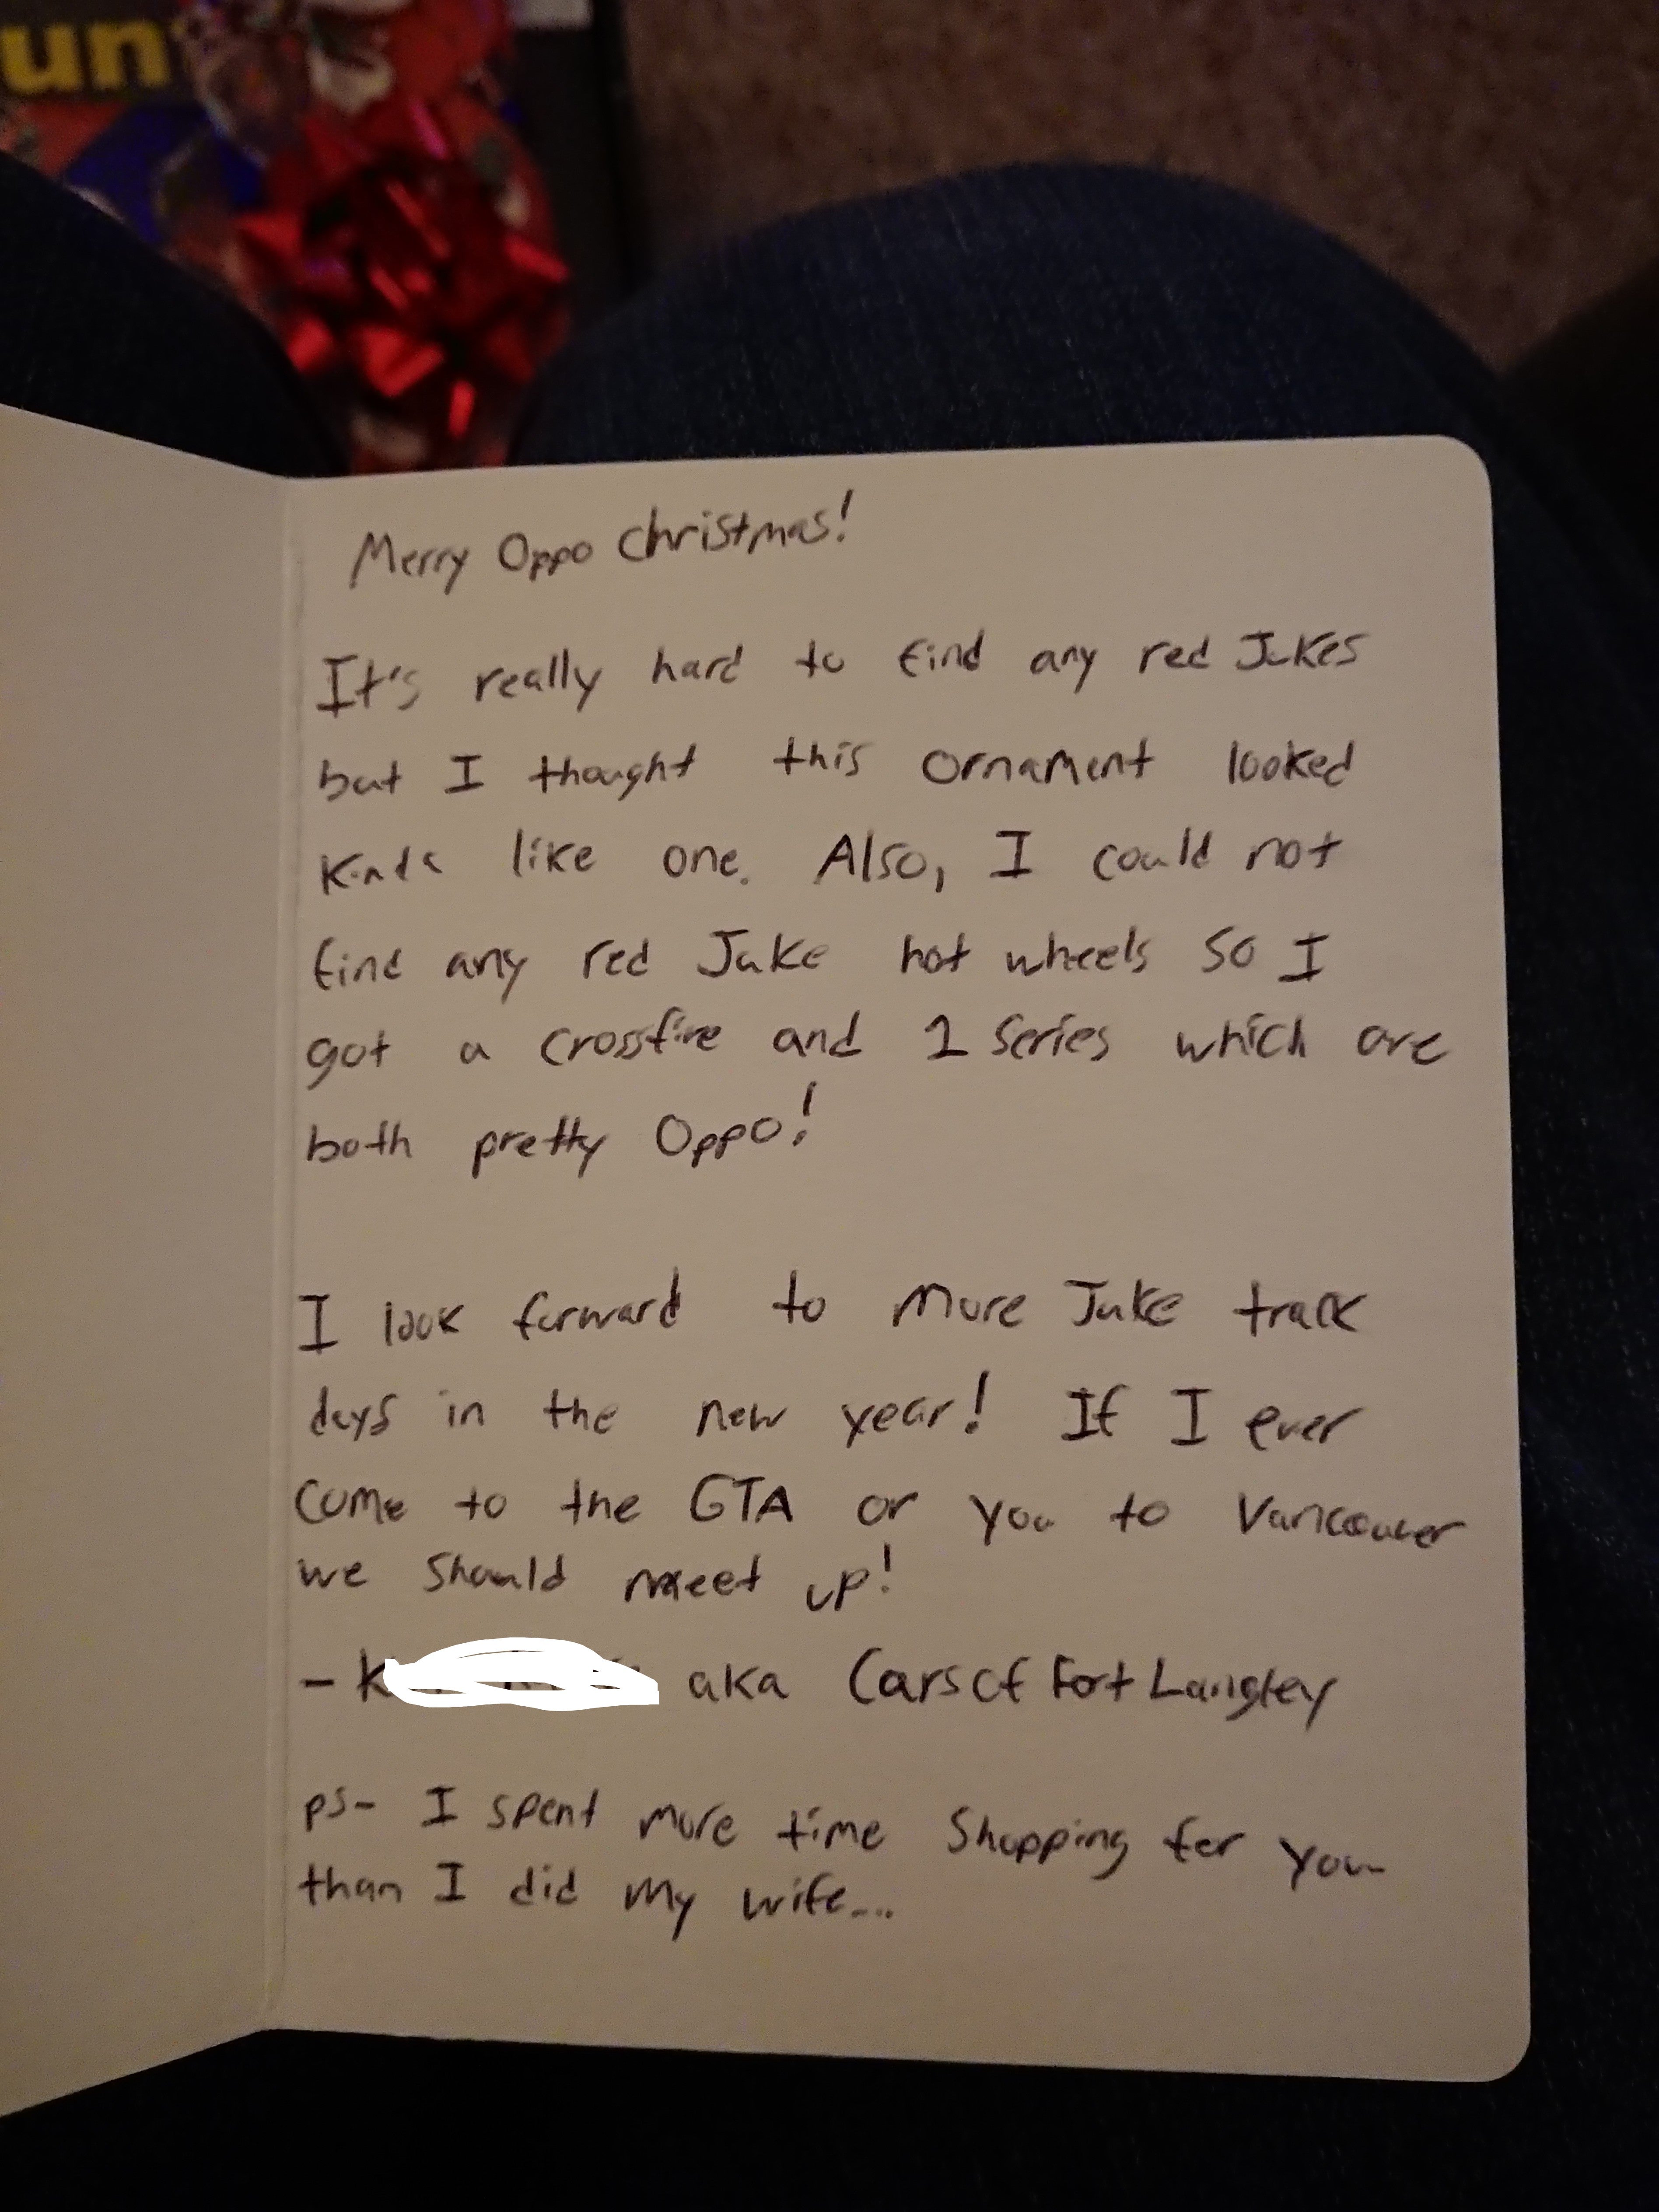 un
Merry Oppo Christmas!
It's really hard to find any red Jukes
but I thought this ornament looked
Kinda like one. Also, I could not
find any red Juke hot wheels so I
got a crossfire and 1 Series which are
both pretty Oppo!
I look forward to more Juke track
days in the new year! If I ever
come to the GTA or you to Vancouver
we should meet up!
- K aka Carsof Fort Langley
ps- I spent more time Shopping for you
than I did my wife...